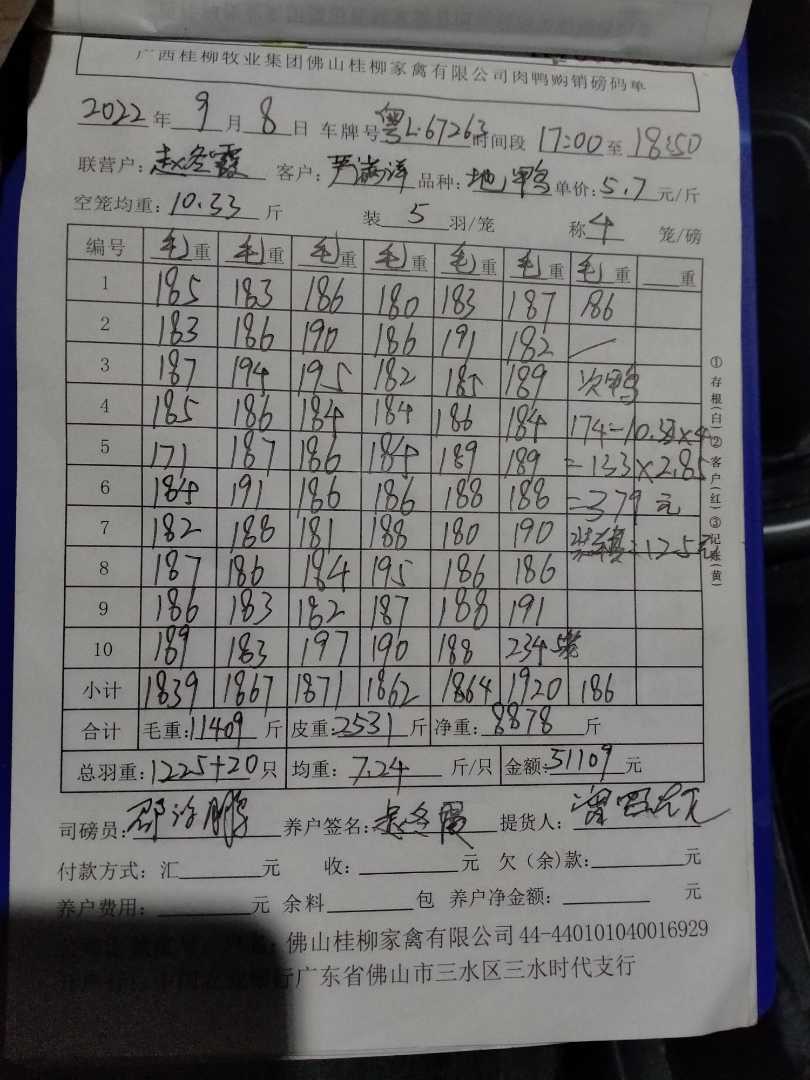 广西桂柳牧业集团佛山桂柳家禽有限公司肉鸭购销磅码单
2022年9月8日 车牌号粤L·67263时间段17:00至18:50
联营户:赵冬霞 客户: 品种:地鸭 单价:5.7元/斤
空笼均重:10.33斤 装5羽/笼 称4笼/磅
编号 毛重 毛重 毛重 毛重 毛重 毛重 毛重 重
1 185 183 186 180 183 187 186
2 183 186 190 186 191 182 /
3 187 194 195 182 185 189 次鸭
4 185 186 184 184 186 184 174-10.33×4
5 171 187 186 184 189 189 =133×2.85
6 184 191 186 186 188 188 =379元
7 182 188 181 188 180 190 125元
8 187 186 184 195 186 186
9 186 183 182 187 188 191
10 189 183 197 190 188 234 5笼
小计 1839 1867 1871 1862 1864 1920 186
合计 毛重:11409斤 皮重:2531斤 净重:8878斤
总羽重:1225+20只 均重:7.24斤/只 金额:51109元
司磅员: 养户签名:赵冬霞 提货人:
付款方式:汇 元 收: 元 欠(余)款: 元
养户费用: 元 余料 包 养户净金额: 元
佛山桂柳家禽有限公司44-440101040016929
行广东省佛山市三水区三水时代支行
①存根(白)②客户(红)③记账(黄)